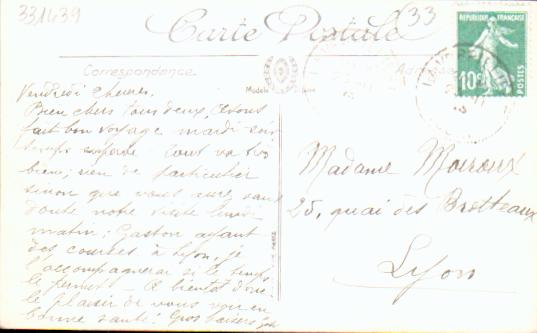 331439
33
Carte Postale
Correspondance
REPUBLIQUE FRANÇAISE
10c
POSTES
Vendredi
Bien chers tous deux, avons
fait bon voyage mardi soir
temps superbe tout va très
bien; rien de particulier
sinon que vous aurez sans
doute notre visite lundi
matin; Gaston ayant
des courses à Lyon, je
l'accompagnerai si le temps
le permet - A bientôt donc
le plaisir de vous voir en
bonne santé! Gros baisers
Madame Moiroux
25, quai des Brotteaux
Lyon